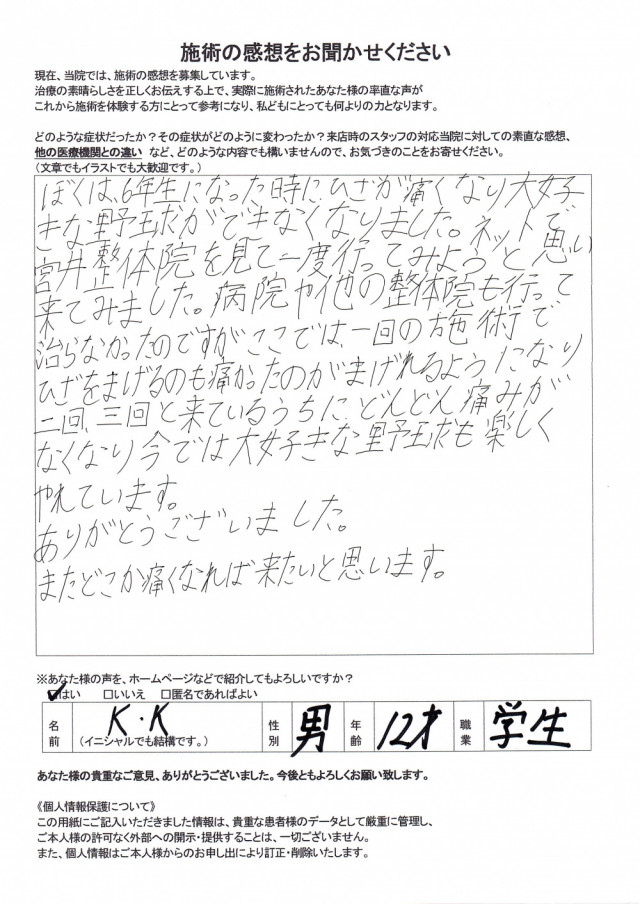 施術の感想をお聞かせください
現在、当院では、施術の感想を募集しています。
治療の素晴らしさを正しくお伝えする上で、実際に施術されたあなた様の率直な声が
これから施術を体験する方にとって参考になり、私どもにとっても何よりの力となります。
どのような症状だったか？その症状がどのように変わったか？来店時のスタッフの対応当院に対しての素直な感想、
他の医療機関との違い など、どのような内容でも構いませんので、お気づきのことをお寄せください。
（文章でもイラストでも大歓迎です。）
ぼくは、6年生になった時に、ひざが痛くなり大好
きな野球ができなくなりました。ネットで
宮井整体院を見て一度行ってみようと思い
来てみました。病院や他の整体院も行って
治らなかったのですがここでは、一回の施術で
ひざをまげるのも痛かったのがまげれるようになり
二回、三回と来ているうちに、どんどん痛みが
なくなり今では大好きな野球も楽しく
やれています。
ありがとうございました。
またどこか痛くなれば来たいと思います。
※あなた様の声を、ホームページなどで紹介してもよろしいですか？
☑はい □いいえ □匿名であればよい
名前 K.K （イニシャルでも結構です。） 性別 男 年齢 12才 職業 学生
あなた様の貴重なご意見、ありがとうございました。今後ともよろしくお願い致します。
《個人情報保護について》
この用紙にご記入いただきました情報は、貴重な患者様のデータとして厳重に管理し、
ご本人様の許可なく外部への開示・提供することは、一切ございません。
また、個人情報はご本人様からのお申し出により訂正・削除いたします。